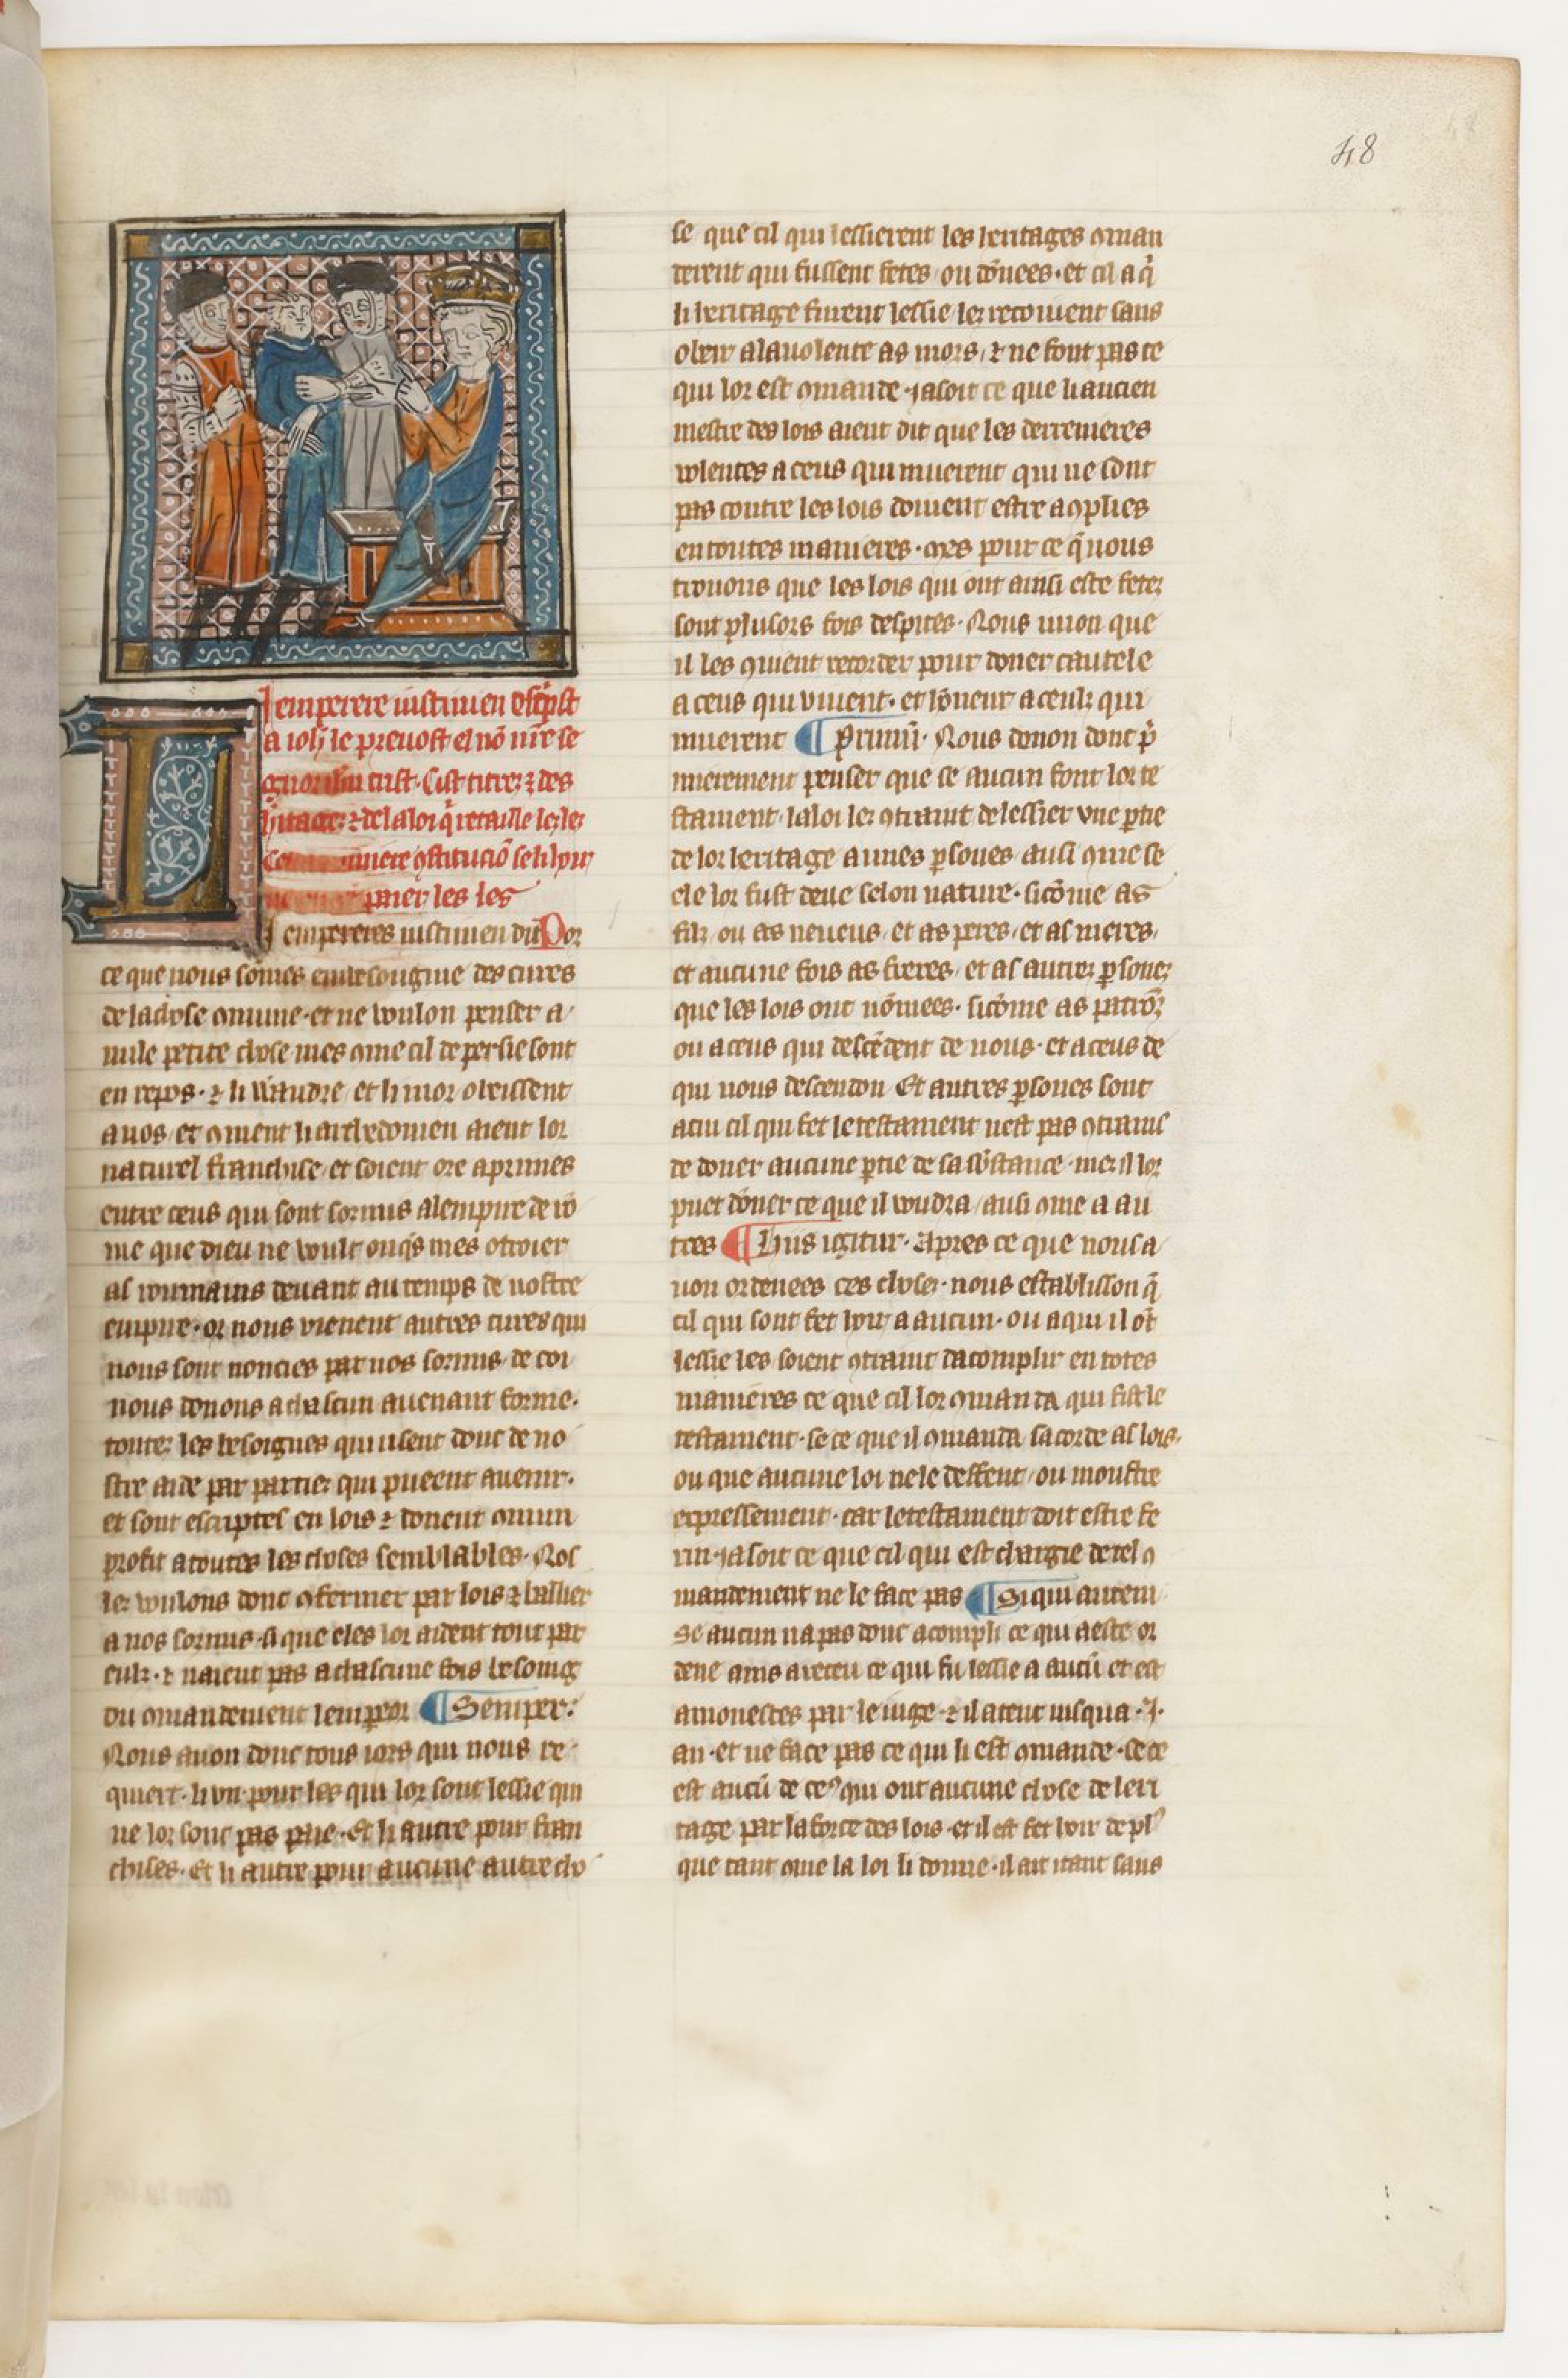 48
L emperere iustinien escript
a ioh le prevost el nō nr̄e se
Cist titre ⁊ des
⁊ de la loi q̄ retaille les les
ꝯstitucō se li hoir
paier les les
L empereres iustinien dit Por
ce que nous sōmes enresongnie des cures
de la chose ꝯmune · et ne voulon penser a
nule petite chose · mes ꝯme cil de perse sont
en repos · ⁊ li Wandre / et li mor obeissent
a nos / et ꝯment li carthedonien aient lor
naturel franchise / et soient ore aprimes
entre ceus qui sont sozmis a lempire de ro
me que dieu ne voult onq̄s mes otroier
as roumains devant au temps de nostre
empire · or nous vienent autres cures qui
nous sont noncies par nos sozmis · de coi
nous donons a chascun avenant forme ·
toutes les besoignes qui usent donc de no
stre aide par parties qui pueent avenir ·
et sont escriptes en lois ⁊ donent ꝯmun
profit a toutes les choses semblables · Nos
les voulons donc ꝯfermer par lois ⁊ baillier
a nos sozmis · si que eles lor aident tout par
eulz · ⁊ naient pas a chascune fois besoing
du ꝯmandement lempeor ¶ Semper :
Nous avon donc tous iors qui nous re
quiert · li un pour les qui lor sont lessie qui
ne lor sont pas paie · Et li autre pour fran
chises · Et li autre pour aucune autre cho
se que cil qui lessierent les heritages ꝯman
derent qui fussent fetes / ou dōnees · et cil a q̄
li heritage furent lessie les recoivent sans
obeir a la volente as mors / ⁊ ne font pas ce
qui lor est ꝯmande · ia soit ce que li ancien
mestre des lois aient dit que les derrenieres
volentes a ceus qui muerent qui ne sont
pas contre les lois doivent estre aꝯplies
en toutes manieres · mes pour ce q̄ nous
trouvons que les lois qui ont ainsi este fetes
sont plusors fois despites · Nous iuion que
il les ꝯvient recorder pour doner cautele
a ceus qui vivent · et hōneur a ceulz qui
muerent ¶ Primū · Nous devon dont p̄
mierement penser que se aucun font lor te
stament / la loi les ꝯtraint de lessier une ꝑtie
de lor heritage a unes ꝑsones / ausi ꝯme se
ele lor fust deue selon nature · sicōme as
filz / ou as neveus / et as peres / et as meres /
et aucune fois as freres / et as autres ꝑsones
que les lois ont nōmees · sicōme as patrōz
ou a ceus qui descēdent de nous · et a ceus de
qui nous descendon Et autres ꝑsones sont
a cui cil qui fet le testament nest pas ꝯtraint
de doner aucune ꝑtie de sa sustance · mes il lor
puet doner ce que il voudra / ausi ꝯme a au
tres ¶ Hiis igitur · Apres ce que nous a
von ordenees ces choses · nous establisson q̄
cil qui sont fet hoir a aucun · ou a qui il ōt
lessie les soient ꝯtraint dacomplir en totes
manieres ce que cil lor ꝯmanda qui fist le
testament · se ce que il ꝯmanda sacorde as lois ·
ou que aucune loi ne le deffent / ou moustre
expressement · car le testament doit estre fe
rin · ia soit ce que cil qui est chargie de tel ꝯ
mandement ne le face pas ¶ Si qui autem
Se aucun na pas donc acompli ce qui a este or
dene ains a receu ce qui fu lessie a aucū et est
amonestes par le iuge · ⁊ il atent iusqua · I ·
an · et ne face pas ce qui li est ꝯmande · se ce
est aucū de ceꝰ qui ont aucune chose de leri
tage par la force des lois · et il est fet hoir de plꝰ
que tant ꝯme la loi li donne · il ait itant sans